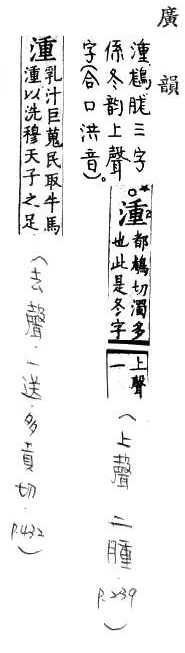 廣韻
湩𪁪朣三字
係冬韵上聲
字(合口洪音)。
湩 都𪁪切濁多
也此是冬字
上聲
一
(上聲 二腫 P.239)
湩 乳汁巨蒐民取牛馬
湩以洗穆天子之足
(去聲 一送 多貢切 P.432)